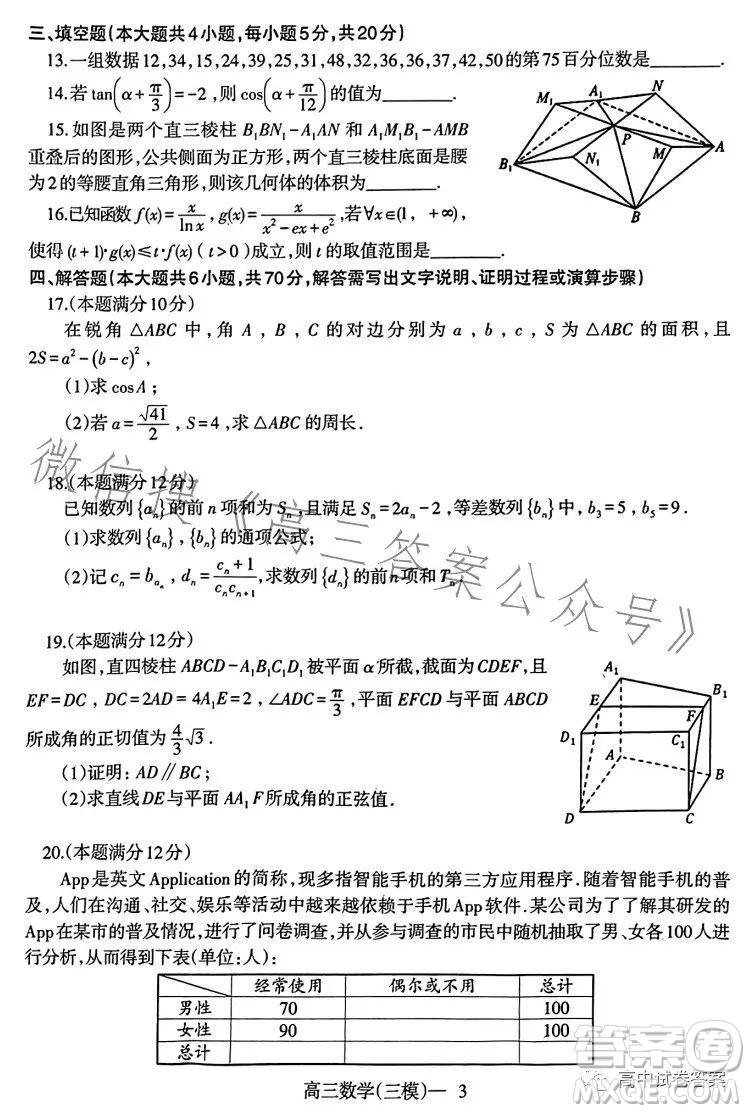 三、填空题(本大题共4小题,每小题5分,共20分)
13.一组数据12,34,15,24,39,25,31,48,32,36,36,37,42,50的第75百分位数是______.
14.若tan(α+π/3)=-2,则cos(α+π/12)的值为______.
15.如图是两个直三棱柱B₁BN₁-A₁AN和A₁M₁B₁-AMB
重叠后的图形,公共侧面为正方形,两个直三棱柱底面是腰
为2的等腰直角三角形,则该几何体的体积为______.
M₁ A₁ N P N₁ M A B₁ B
16.已知函数f(x)=x/ln x,g(x)=x/(x²-ex+e²),若∀x∈(1,+∞),
使得(t+1)·g(x)≤t·f(x)(t>0)成立,则t的取值范围是______.
四、解答题(本大题共6小题,共70分,解答需写出文字说明、证明过程或演算步骤)
17.(本题满分10分)
在锐角△ABC中,角A,B,C的对边分别为a,b,c,S为△ABC的面积,且
2S=a²-(b-c)²,
(1)求cosA;
(2)若a=√41/2,S=4,求△ABC的周长.
18.(本题满分12分)
已知数列{aₙ}的前n项和为Sₙ,且满足Sₙ=2aₙ-2,等差数列{bₙ}中,b₃=5,b₅=9.
(1)求数列{aₙ},{bₙ}的通项公式;
(2)记cₙ=b_{aₙ},dₙ=(cₙ+1)/(cₙcₙ₊₁),求数列{dₙ}的前n项和Tₙ
19.(本题满分12分)
如图,直四棱柱ABCD-A₁B₁C₁D₁被平面α所截,截面为CDEF,且
EF=DC,DC=2AD=4A₁E=2,∠ADC=π/3,平面EFCD与平面ABCD
所成角的正切值为4/3√3.
(1)证明:AD∥BC;
(2)求直线DE与平面AA₁F所成角的正弦值.
A₁ B₁ E F D₁ C₁ A B D C
20.(本题满分12分)
App是英文Application的简称,现多指智能手机的第三方应用程序.随着智能手机的普
及,人们在沟通、社交、娱乐等活动中越来越依赖于手机App软件.某公司为了了解其研发的
App在某市的普及情况,进行了问卷调查,并从参与调查的市民中随机抽取了男、女各100人进
行分析,从而得到下表(单位:人):
经常使用 偶尔或不用 总计
男性 70 100
女性 90 100
总计
高三数学(三模)— 3
微信搜《高三答案公众号》
答案圈
高中试卷答案